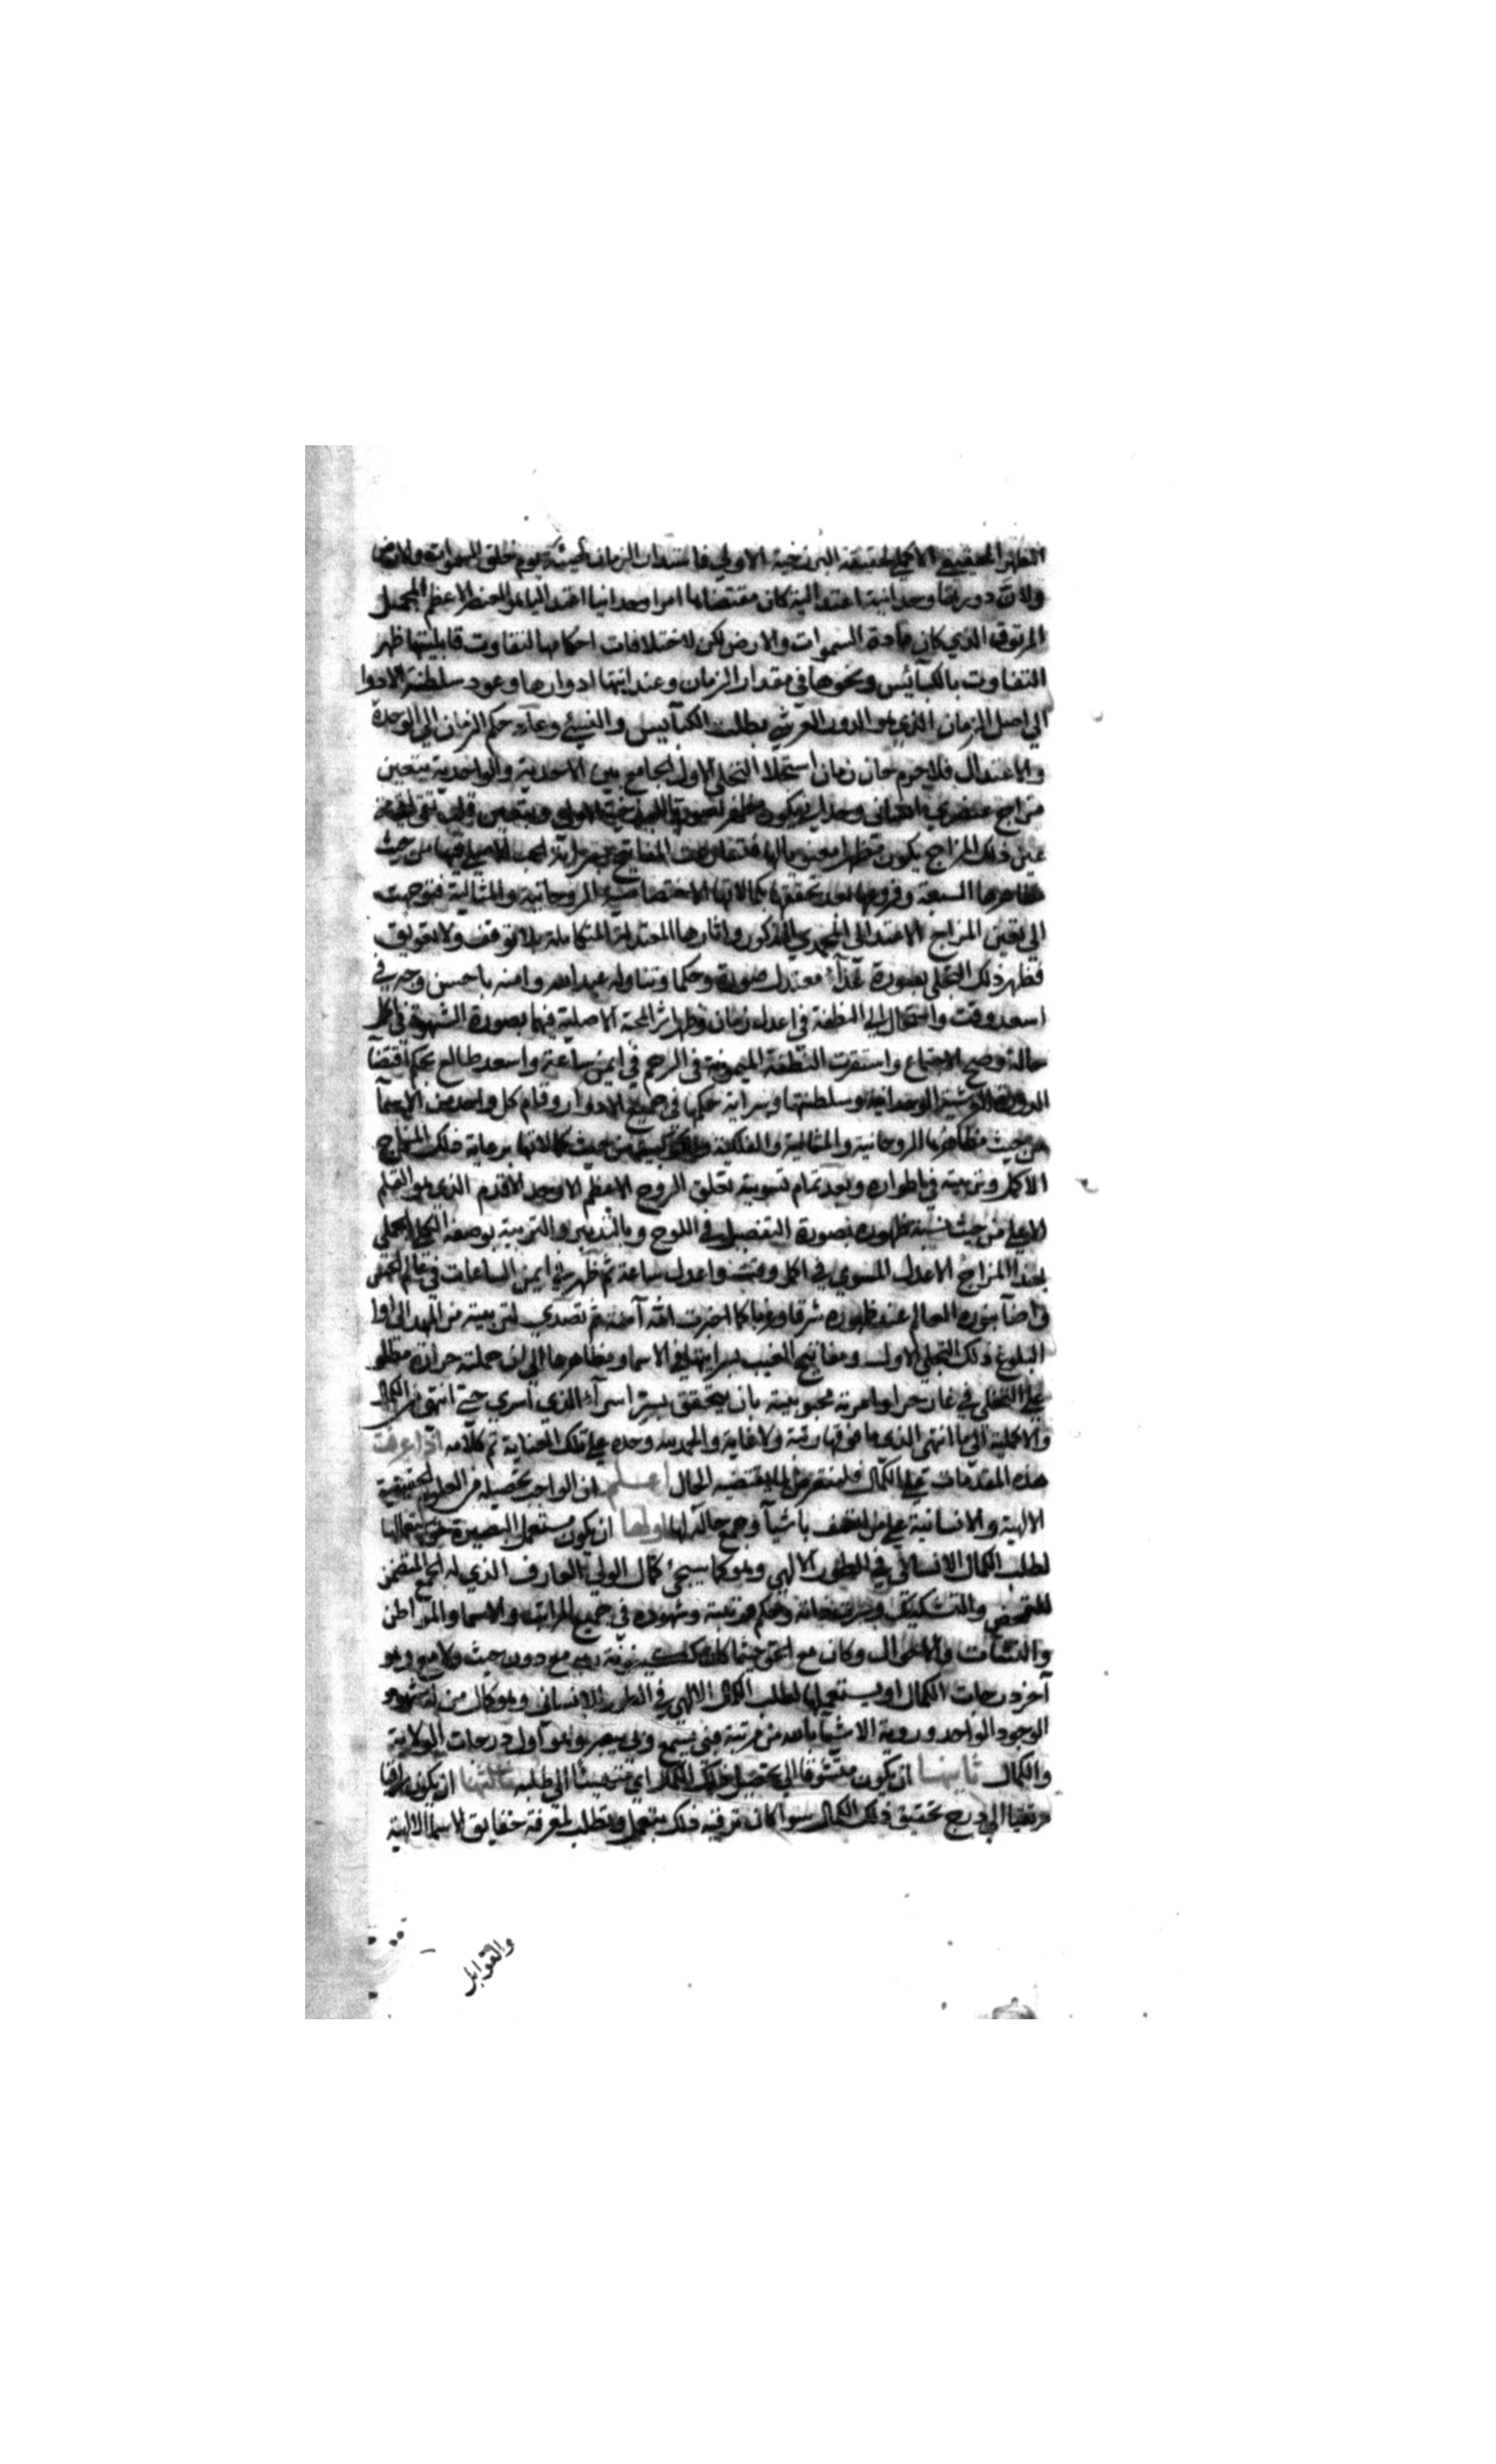 المظهر الحقيقي الاكملي لحقيقة البرزخية الاولي فاستدار الزمان كهيئته يوم خلق السموات والارض
ولان دورتها وحدانية اعتدالية كان مقتضاها امرا وحدانيا اعتداليا هو العنصر الاعظم المجمل
المرتوق الذي كان مادة السموات والارض لكن لاختلافات احكامها لتفاوت قابليتها ظهر
التفاوت بالكبآئس ونحوها في مقدار الزمان وعند انتها ادوارها وعود سلطنة الادوا
الي اصل الزمان الذي هو الدور العرشي بطلت الكبآيس والنسئ وعاد حكم الزمان الي الوحدة
والاعتدال فلا جرم حان زمان استجلا التجلي الاول الجامع بين الاحدية والواحدية بتعين
مزاج عنصري انساني وحداني يكون مظهر لصورة البرزخية الاولي وبتعين قلب تقي
عن ذلك المزاج يكون مظهرا معنويا لها المفاتيح فيها من حيث
مظاهرها السبعة وفروعها بعد تحققها بكمالاتها الاختصاصية الروحانية والمثالية فتوجهت
الي تعين المزاج الاعتدالي المحمدي المذكور واثارها المعتدلة المتكاملة بلا توقف ولا تعويق
فظهر ذلك التجلي بصورة غذآء معتدل صورة وحكما وتناوله عبد الله وامنه باحسن وجه في
اسعد وقت واستحال الي النطفة في اعدل زمان وظهر اثر المحبة الاصلية فيهما بصورة الشهوة في اكمل
حالة وصح الاجتماع واستقرت النطفة الميمونة في الرحم في ايمن ساعة واسعد طالع بحكم اقتضآ
الدورة العرشية الوحدانية وسلطنتها وسراية حكمها في جميع الادوار وقام كل واحد من الاسمآ
من حيث مظاهرها الروحانية والمثالية والفلكية والكوكبية من حيث كمالاتها برعاية ذلك المزاج
الاكمل وتربيته في اطواره وبعد تمام تسويته تعلق الروح الاعظم الاوحد الاقدم الذي هو القلم
الاعلي من حيث نسبة ظهوره بصورة التفصيل في اللوح وبالتدبير والتربية بوصفه الكلي الجملي
بهذا المزاج الاعدل المسوي في اكمل وقت واعدل ساعة ثم ظهر في ايمن الساعات في عالم الحس
فاضآ بنوره العالم عند ظهوره شرقا وغربا كما اخبرت امه آمنة ثم تصدي لتربيته من المهد الي اوا
البلوغ ذلك التجلي الاول ومفاتيح الغيب بسرايتها في الاسما ومظاهرها الي ان حملته حرارة مطلو
علي التحلي في غار حرا وامرته محبوبيته بان يتحقق بسر اسرآء الذي اسري حتي انتهي في الكمال
والاكملية الي ما انتهي الذي ما فوقها رتبة ولا غاية والحمد لله وحده علي تلك العناية تم كلامه اذا عرفت
هذه المقدمات علي الكمال فلنتعرض لما يقتضيه الحال اعلم ان الواجب تحصيله من العلوم الحقيقية
الالهية والانسانية علي من اتصف باشيآ وجمع حالة لها اولها ان يكون مستعمل البصيرة
لطلب الكمال الانساني في الطور الالهي وهو كما سيجئ كمال الولي العارف الذي له الجمع المتضمن
للتمحض والتشكيك وحكم مرتبته وشهوده في جميع المراتب والاسما والمواطن
والنشآت والاحوال وكان مع الحق حيثما كان دون حيث ولا مع وهو
آخر درجات الكمال او يستعملها لطلب الكمال الالهي في الطور الانساني وهو كمال من له شهود
الوجود الواحد وروية الاشيآ بالله من مرتبة فبي يسمع وبي يبصر وهو اول درجات الولاية
والكمال ثانيها ان يكون متشوقا الي تحصيل ذلك الكمال اي منبعثا الي طلبه ثالثها ان يكون راقيا
مرتقيا الي درج تحقيق ذلك الكمال سوا كان ترقيه ذلك بتعمل وتطلب لمعرفة حقايق الاسما الالهية
والقوابل